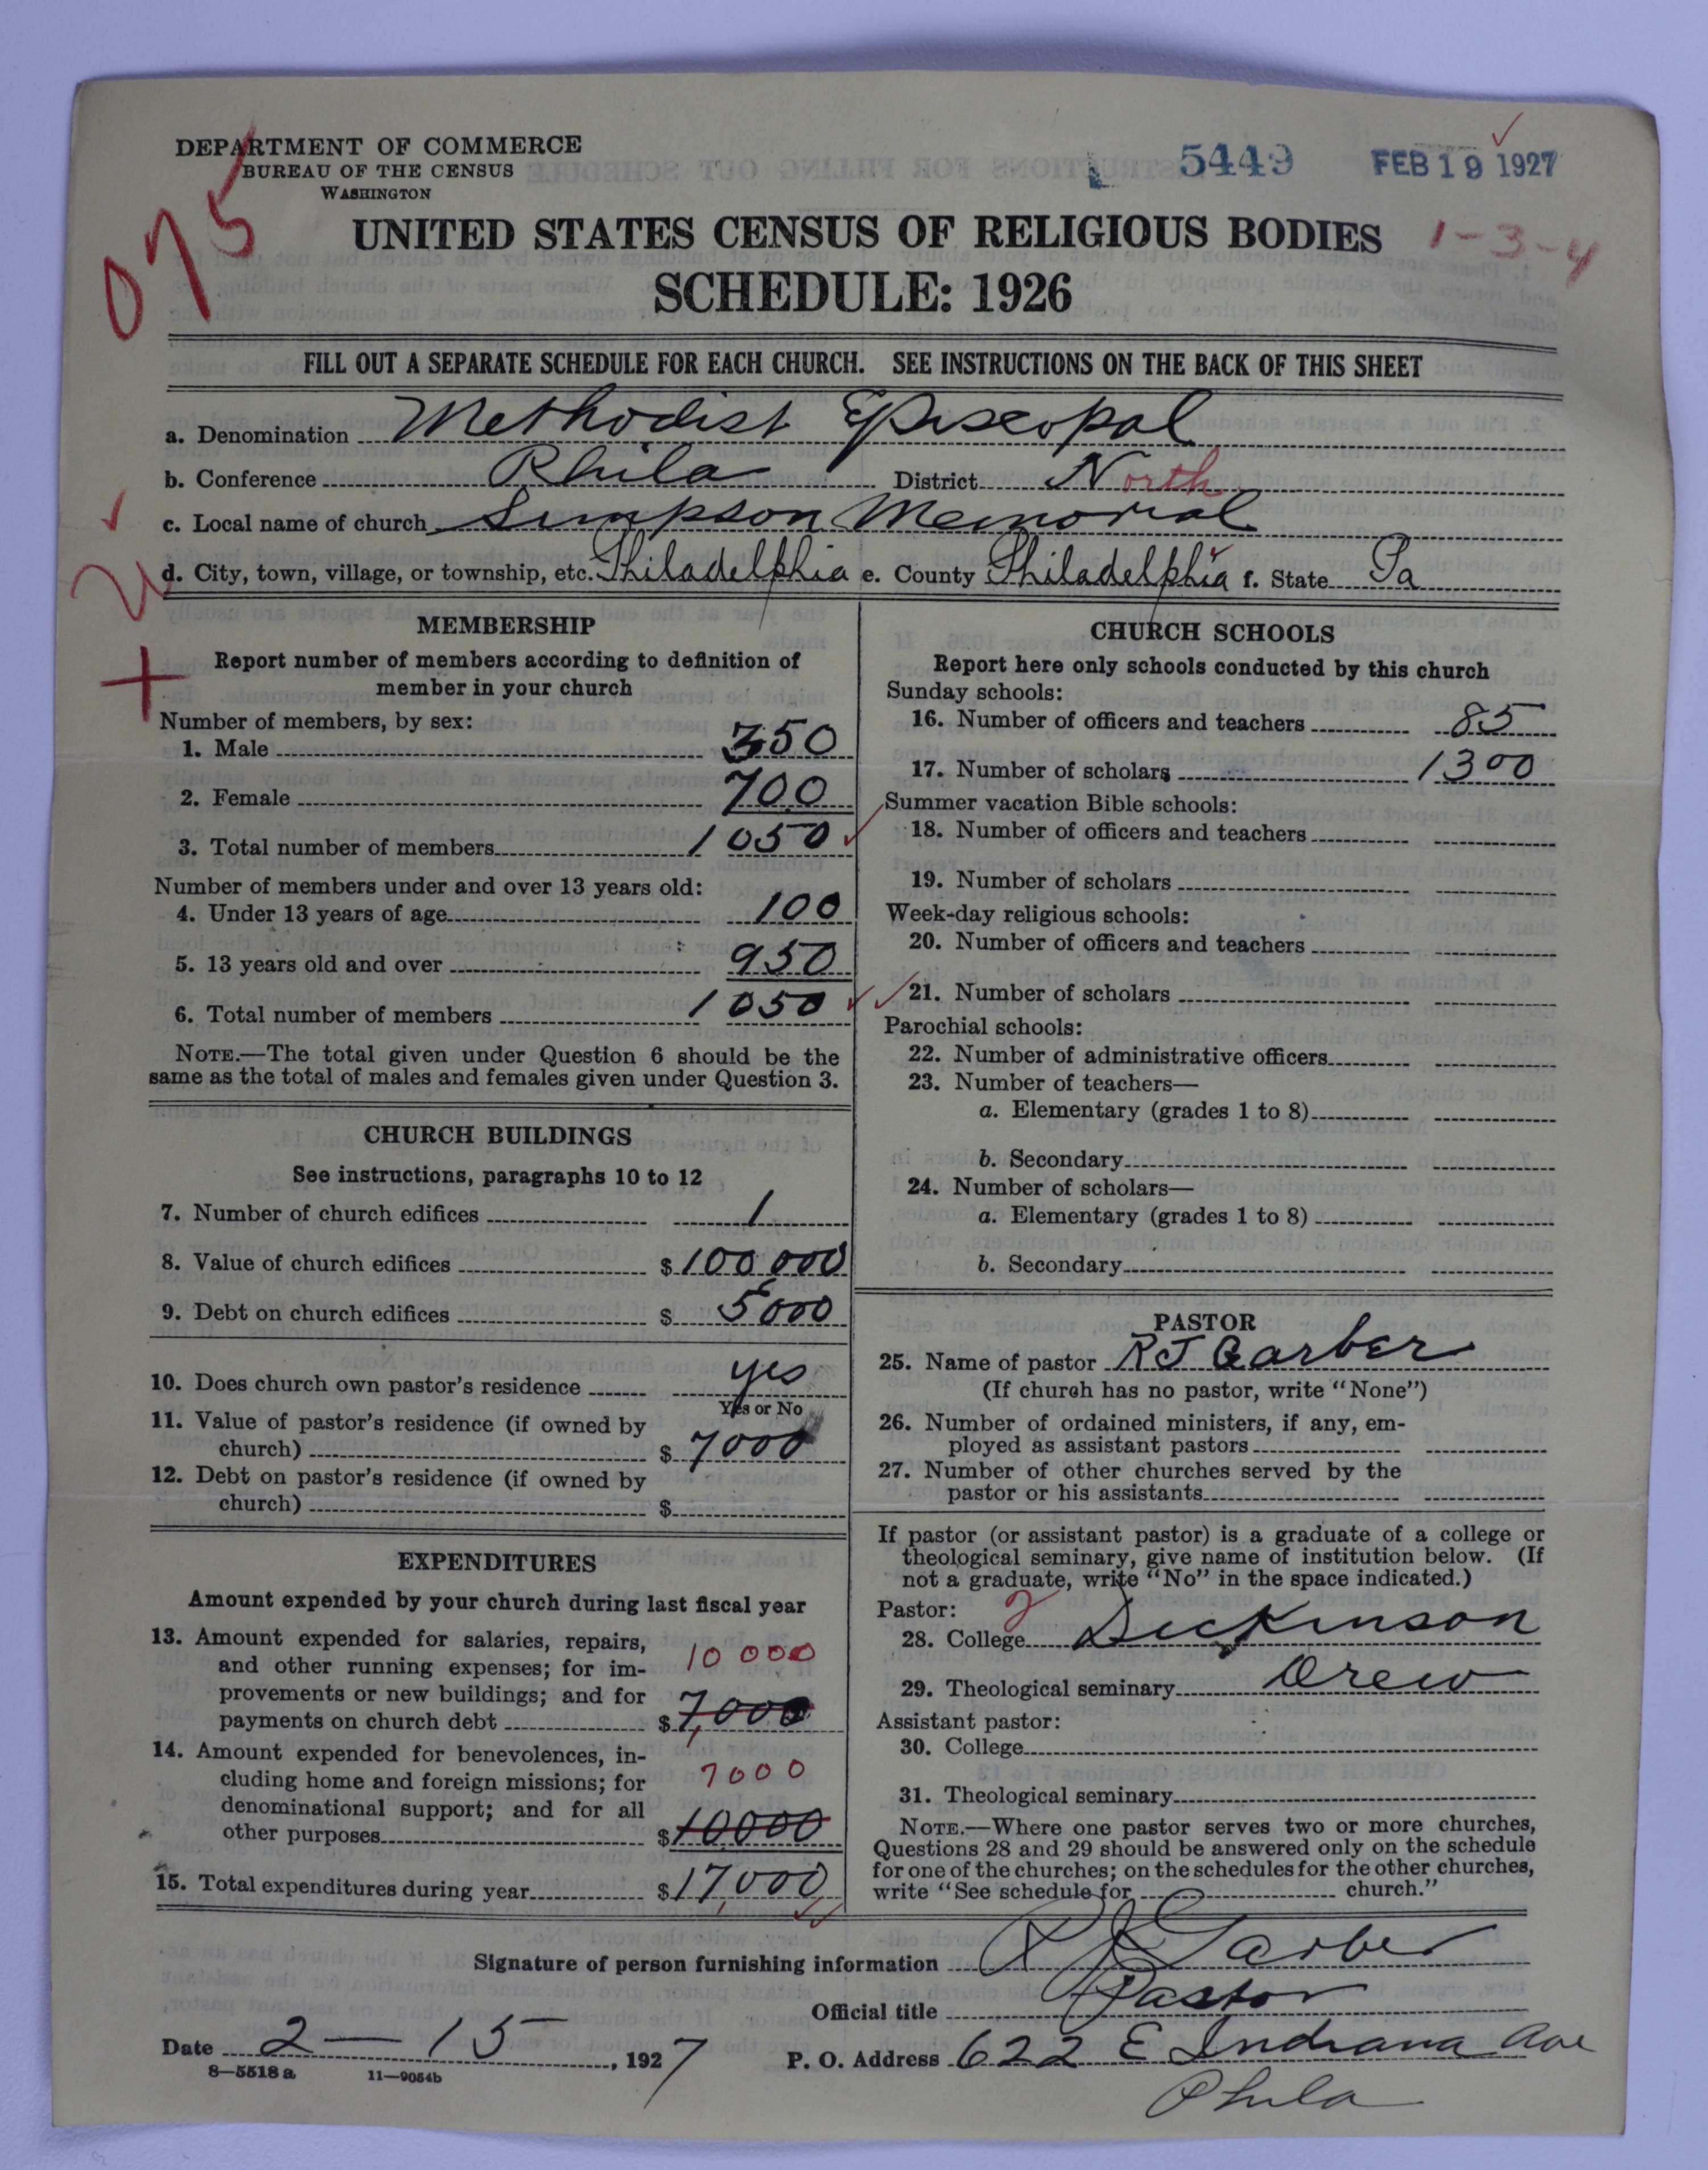 DEPARTMENT OF COMMERCE
BUREAU OF THE CENSUS
WASHINGTON
5449
FEB 19 1927
075
UNITED STATES CENSUS OF RELIGIOUS BODIES
1-3-4
SCHEDULE: 1926
FILL OUT A SEPARATE SCHEDULE FOR EACH CHURCH. SEE INSTRUCTIONS ON THE BACK OF THIS SHEET
a. Denomination Methodist Episcopal
b. Conference Phila District North
c. Local name of church Simpson Memorial
d. City, town, village, or township, etc. Philadelphia e. County Philadelphia f. State Pa
MEMBERSHIP
Report number of members according to definition of
member in your church
Number of members, by sex:
1. Male 350
2. Female 700
3. Total number of members 1050
Number of members under and over 13 years old:
4. Under 13 years of age 100
5. 13 years old and over 950
6. Total number of members 1050
NOTE.—The total given under Question 6 should be the
same as the total of males and females given under Question 3.
CHURCH BUILDINGS
See instructions, paragraphs 10 to 12
7. Number of church edifices 1
8. Value of church edifices $100,000
9. Debt on church edifices $ 5000
10. Does church own pastor's residence yes
Yes or No
11. Value of pastor's residence (if owned by
church) $ 7000
12. Debt on pastor's residence (if owned by
church) $
EXPENDITURES
Amount expended by your church during last fiscal year
13. Amount expended for salaries, repairs,
and other running expenses; for im- 10 000
provements or new buildings; and for
payments on church debt $ 7,000
14. Amount expended for benevolences, in-
cluding home and foreign missions; for 7000
denominational support; and for all
other purposes $10000
15. Total expenditures during year $17,000
CHURCH SCHOOLS
Report here only schools conducted by this church
Sunday schools:
16. Number of officers and teachers 85
17. Number of scholars 1300
Summer vacation Bible schools:
18. Number of officers and teachers
19. Number of scholars
Week-day religious schools:
20. Number of officers and teachers
21. Number of scholars
Parochial schools:
22. Number of administrative officers
23. Number of teachers—
a. Elementary (grades 1 to 8)
b. Secondary
24. Number of scholars—
a. Elementary (grades 1 to 8)
b. Secondary
PASTOR
25. Name of pastor RJ Garber
(If church has no pastor, write "None")
26. Number of ordained ministers, if any, em-
ployed as assistant pastors
27. Number of other churches served by the
pastor or his assistants
If pastor (or assistant pastor) is a graduate of a college or
theological seminary, give name of institution below. (If
not a graduate, write "No" in the space indicated.)
Pastor: 2
28. College Dickinson
29. Theological seminary Drew
Assistant pastor:
30. College
31. Theological seminary
NOTE.—Where one pastor serves two or more churches,
Questions 28 and 29 should be answered only on the schedule
for one of the churches; on the schedules for the other churches,
write "See schedule for church."
Signature of person furnishing information R J Garber
Official title Pastor
Date 2 — 15, 1927 P. O. Address 622 E Indiana Ave
8—5518 a 11—9054b
Phila